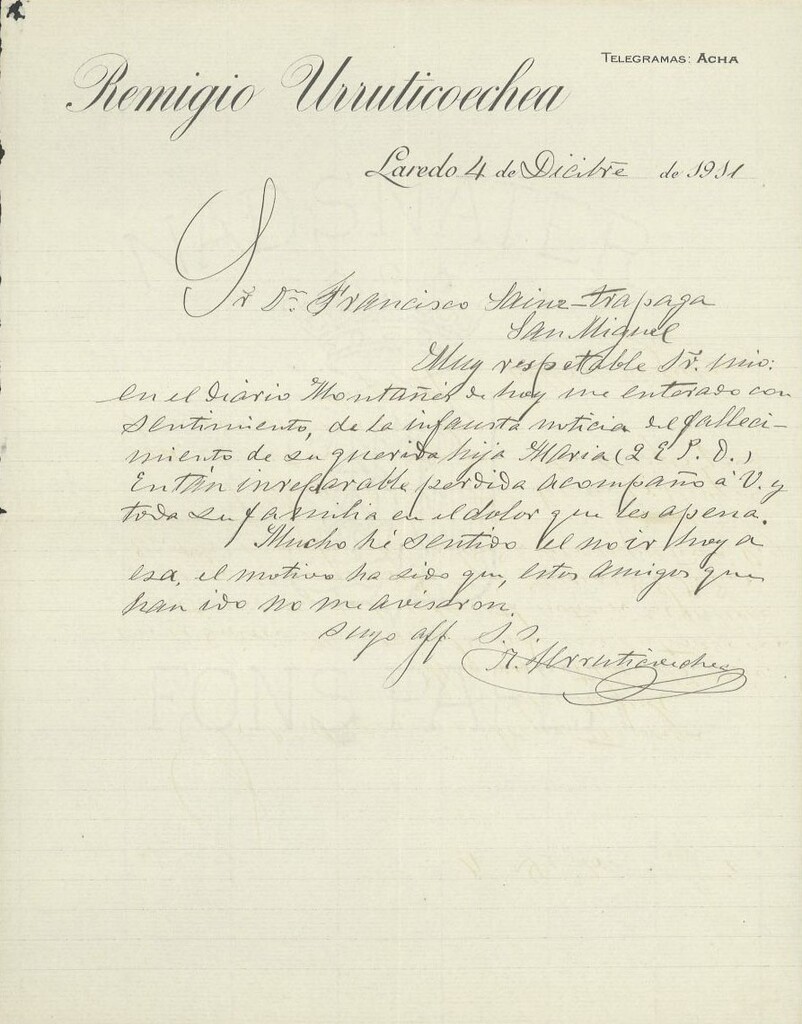 TELEGRAMAS: ACHA
Remigio Urruticoechea
Laredo 4 de Dicibre de 1911
Sr Dn Francisco Sainz-trapaga
San Miguel
Muy respetable Sr. mio:
en el diario Montañes de hoy me enterado con
sentimiento, de la infausta noticia del falleci-
miento de su querida hija Maria (Q E P. D.)
En tan irreparable perdida acompaño á V. y
toda su familia en el dolor que les apena.
Mucho hé sentido el no ir hoy a
esa, el motivo ha sido que, estos amigos que
han ido no me avisaron.
suyo aff. S. S.
R. Urruticoechea